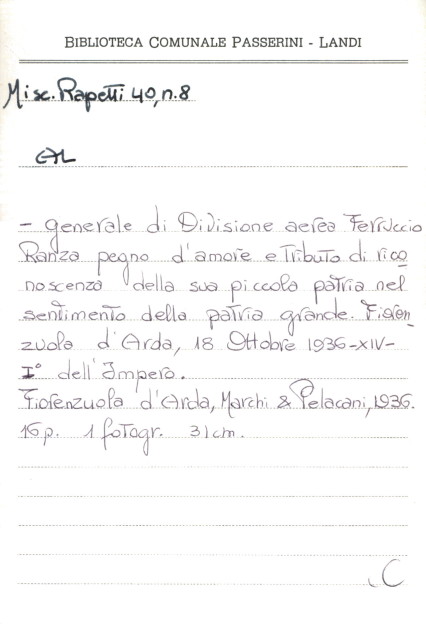 BIBLIOTECA COMUNALE PASSERINI - LANDI
Misc. Rapetti 40, n. 8
AL
- generale di Divisione aerea Ferruccio
Ranza pegno d'amore e tributo di rico
noscenza della sua piccola patria nel
sentimento della patria grande. Fioren
zuola d'Arda, 18 Ottobre 1936-XIV-
I° dell'Impero.
Fiorenzuola d'Arda, Marchi & Pelacani, 1936.
16 p. 1 fotogr. 31 cm.
C